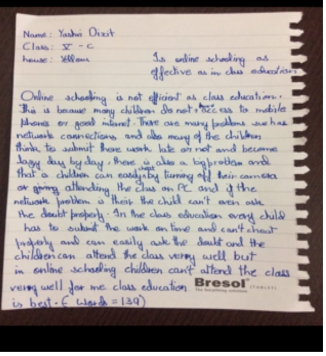 Name: Yashvi Dixit
Class: V - C
house: Yellow
Is online schooling as
effective as in class education
Online schooling is not efficient as class education.
This is because many children do not access to mobile
phones or good intanet. There are many problems such as
network connections and also many of the children
think to submit there work late or not and become
lazy day by day. there is also a big problem and
that a children can easily cheat by turning off their camera
or attending the class on PC and if the
network problem is their the child can't even ask
the doubt properly. In the class education every child
has to submit the work on time and can't cheat
properly and can easily ask the doubt and the
children can attend the class verry well but
in online schooling children can't attend the class
verry well for me class education
is best. (words = 139)
Bresol (TABLET)